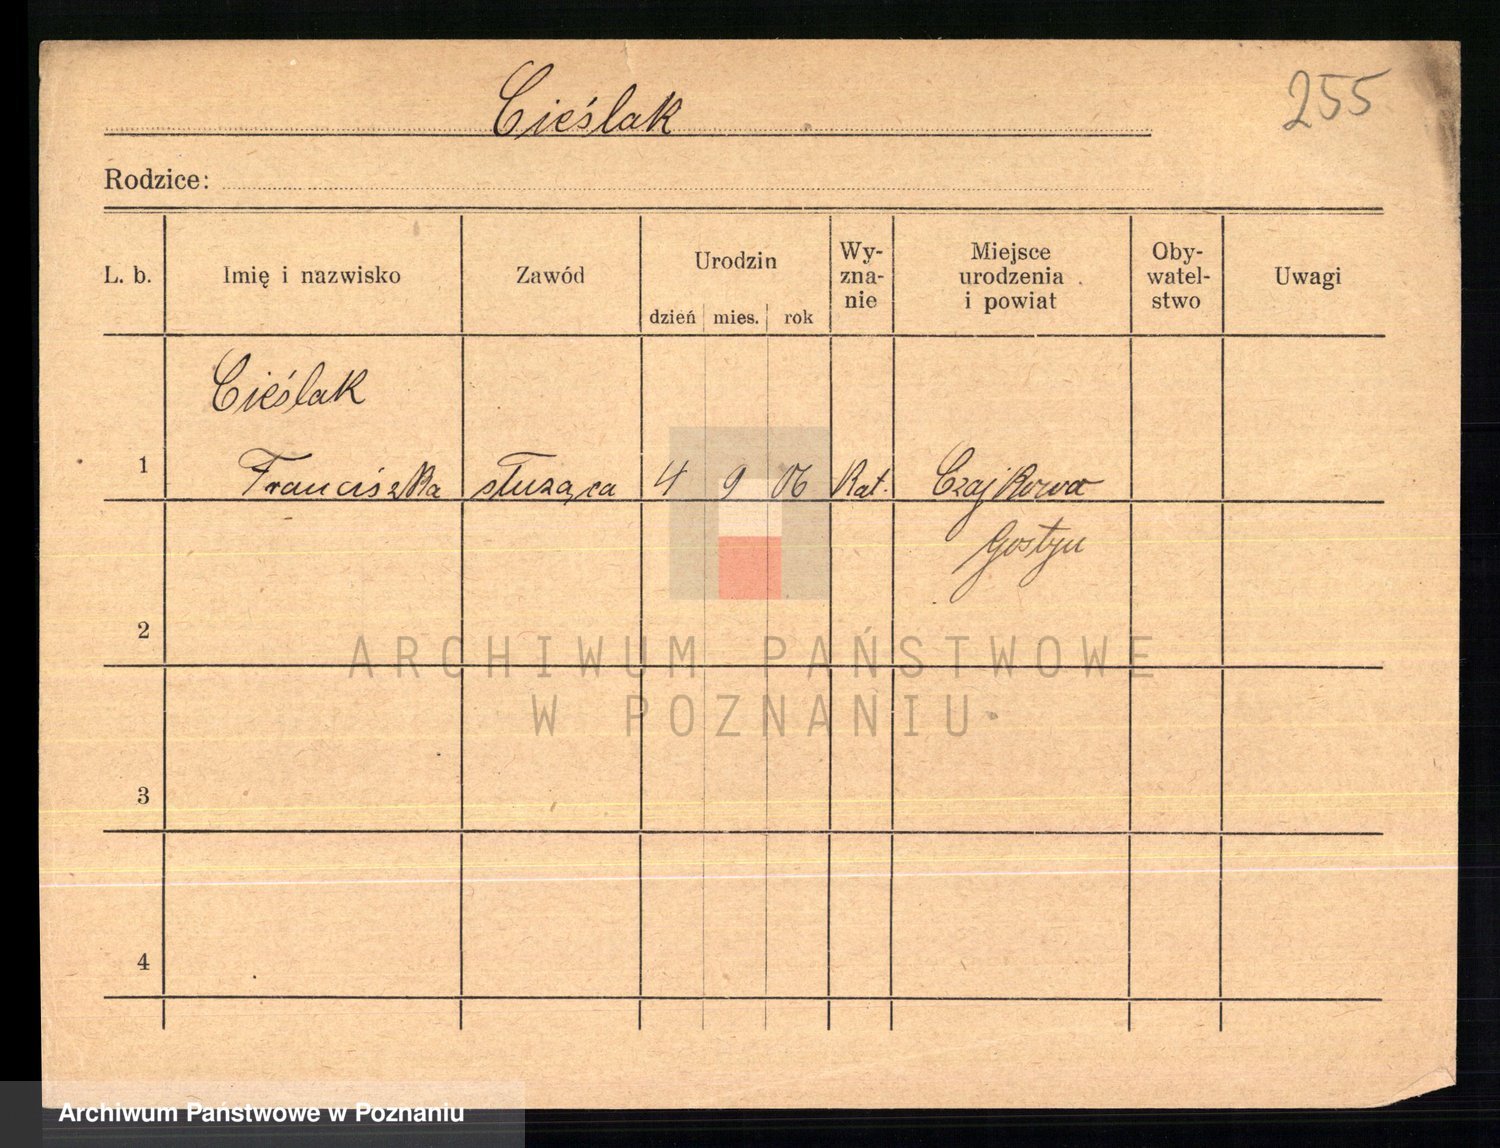 Cieślak
255
Rodzice:
L. b.
Imię i nazwisko
Zawód
Urodzin
dzień mies. rok
Wy-
zna-
nie
Miejsce
urodzenia
i powiat
Oby-
watel-
stwo
Uwagi
Cieślak
1 Franciszka służąca 4 9 06 Kat. Czajkowo
Gostyn
2
ARCHIWUM PAŃSTWOWE
W POZNANIU
3
4
Archiwum Państwowe w Poznaniu